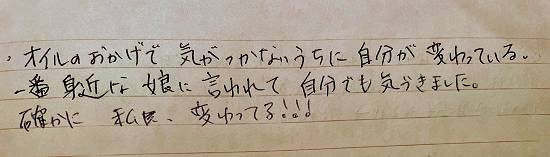 ・オイルのおかげで 気がつかないうちに 自分が 変わっている。
一番 身近な 娘に 言われて 自分でも 気づきました。
確かに 私、変わってる!!!